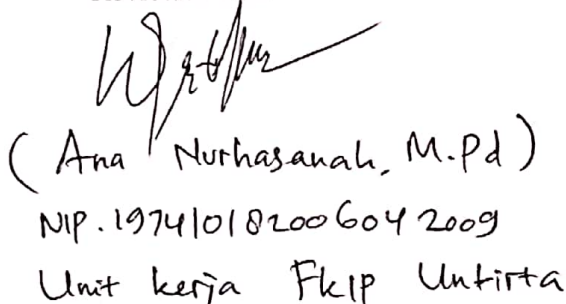 ( Ana Nurhasanah, M.Pd )
NIP. 197410182006042009
Unit kerja FKIP Untirta